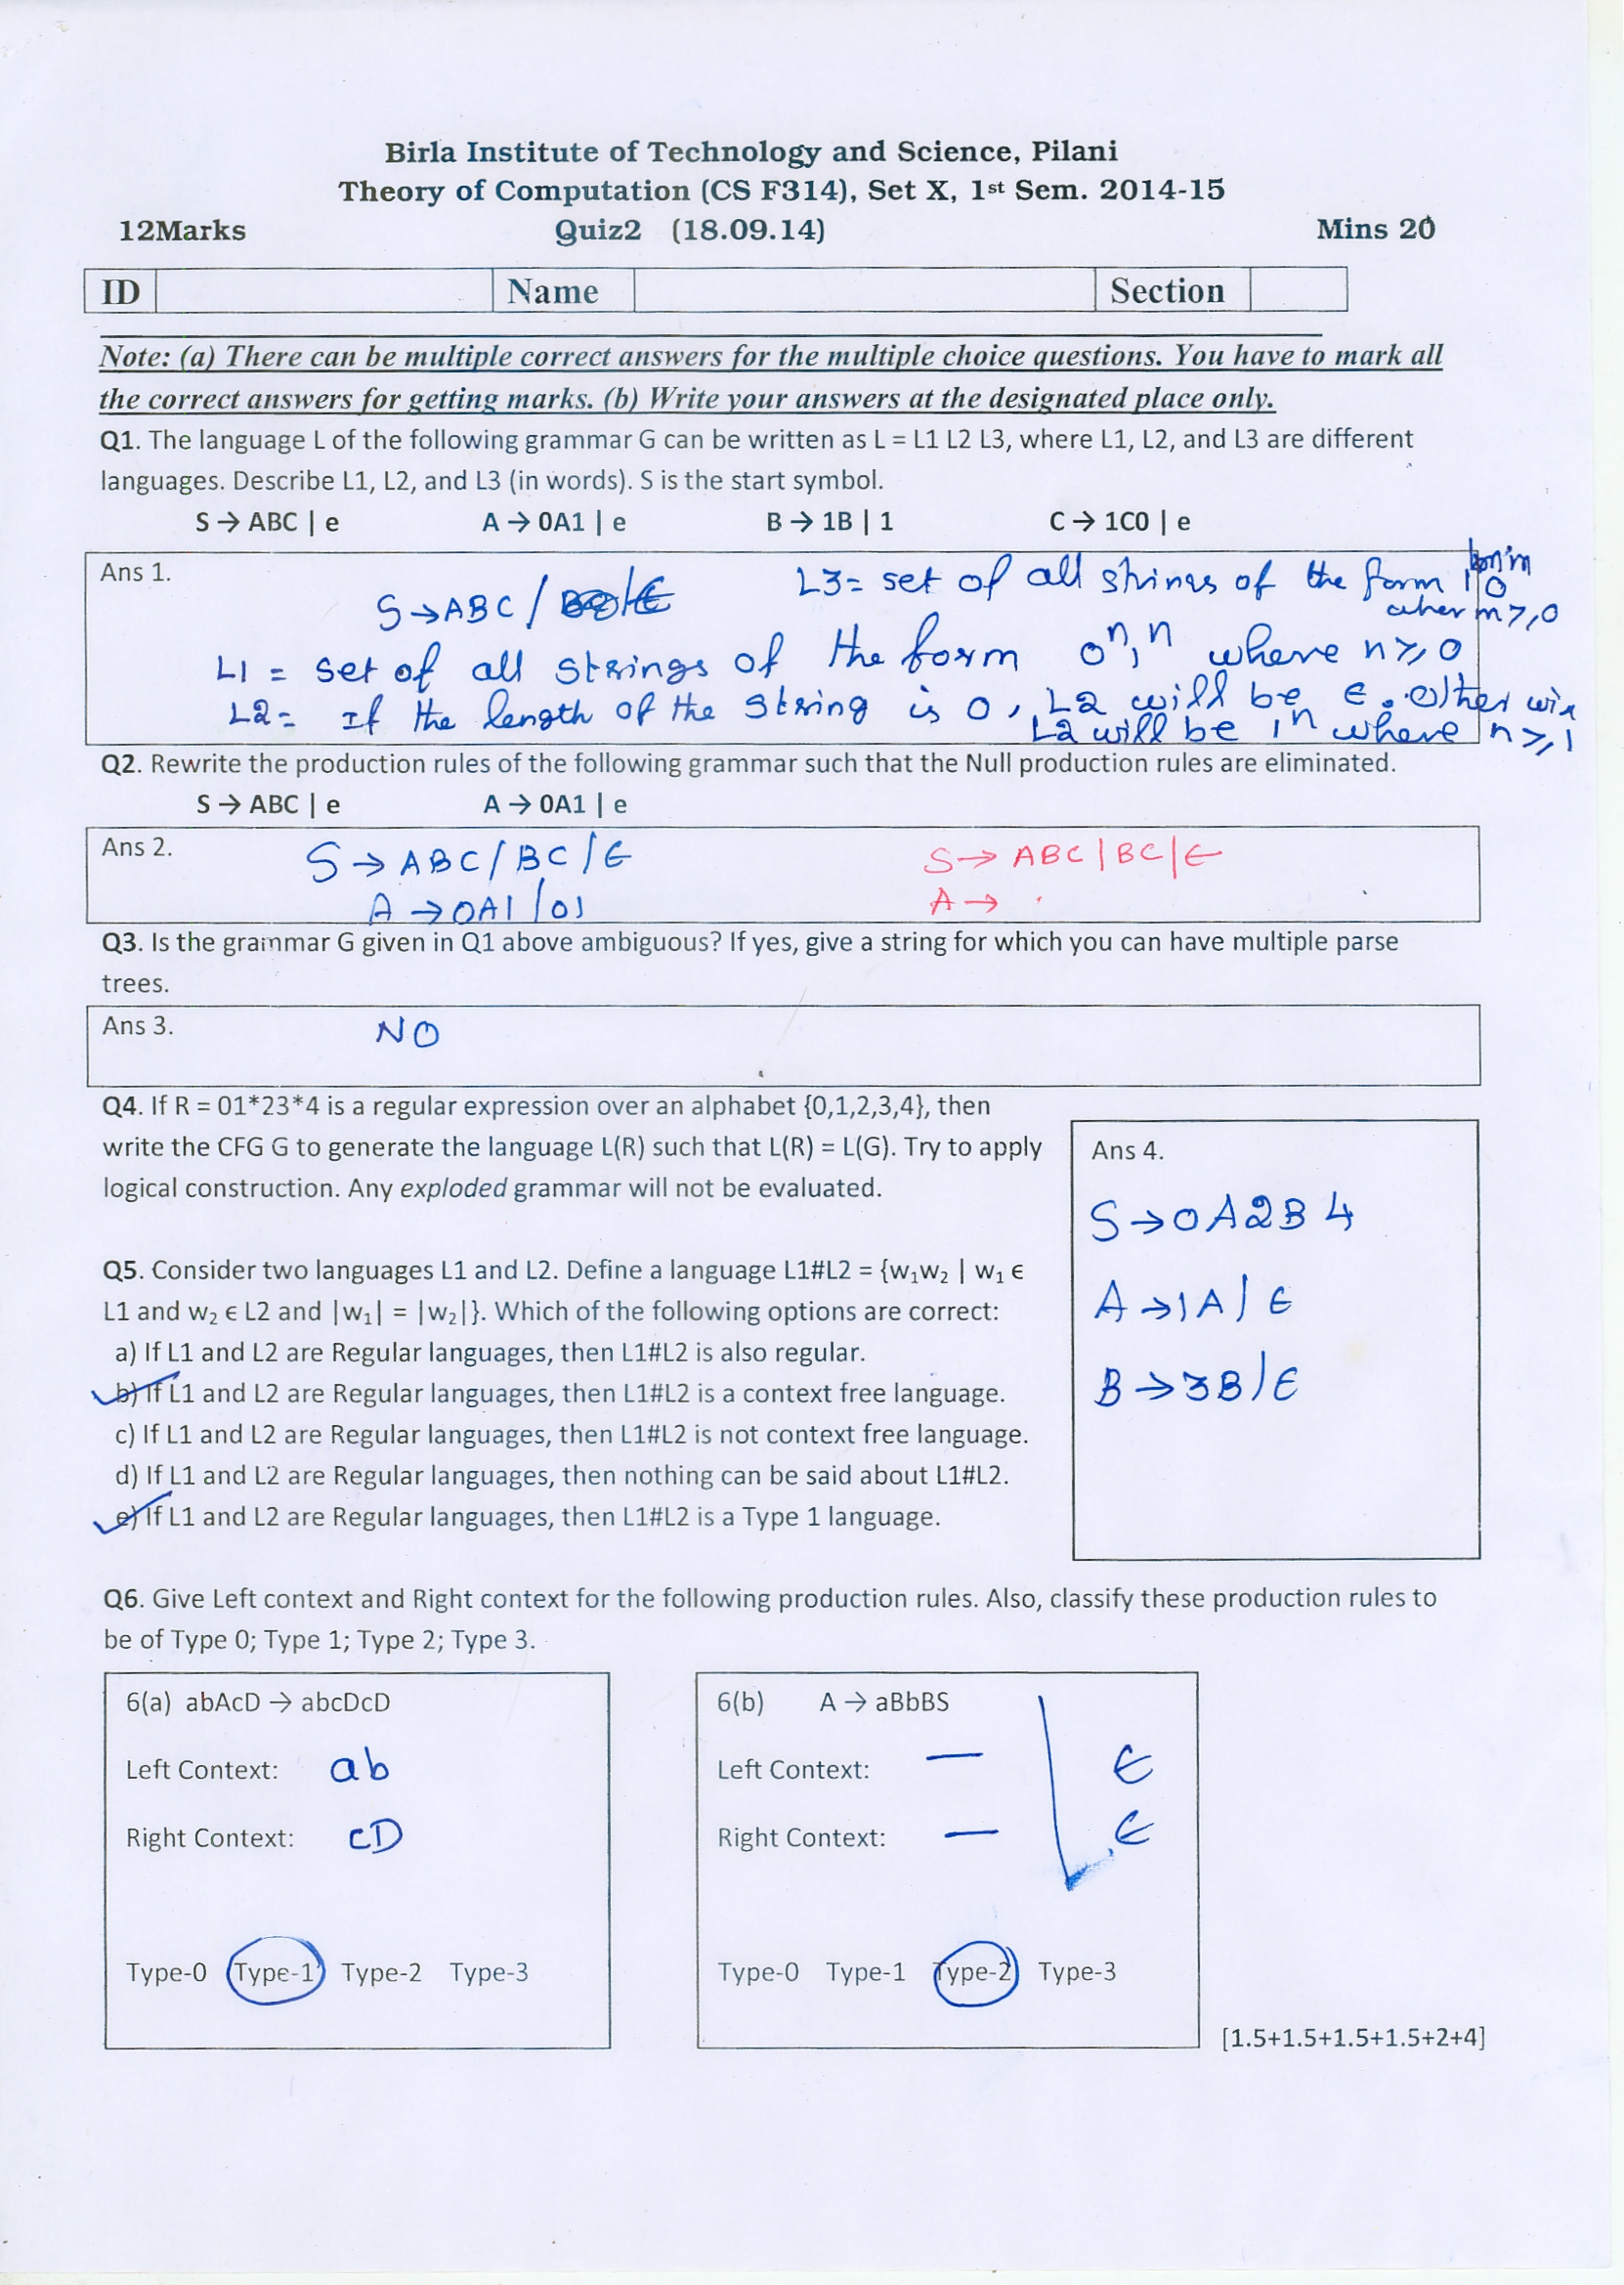 Birla Institute of Technology and Science, Pilani
Theory of Computation (CS F314), Set X, 1st Sem. 2014-15
12Marks Quiz2 (18.09.14) Mins 20
ID Name Section
Note: (a) There can be multiple correct answers for the multiple choice questions. You have to mark all
the correct answers for getting marks. (b) Write your answers at the designated place only.
Q1. The language L of the following grammar G can be written as L = L1 L2 L3, where L1, L2, and L3 are different
languages. Describe L1, L2, and L3 (in words). S is the start symbol.
S → ABC | e A → 0A1 | e B → 1B | 1 C → 1C0 | e
Ans 1.
S → ABC /
L3 = set of all strings of the form
where m ≥ 0
L1 = set of all strings of the form 0ⁿ1ⁿ where n ≥ 0
L2 = If the length of the string is 0, L2 will be ε. Other wise
L2 will be 1ⁿ where n ≥ 1
Q2. Rewrite the production rules of the following grammar such that the Null production rules are eliminated.
S → ABC | e A → 0A1 | e
Ans 2.
S → ABC / BC / ε S → ABC | BC | ε
A → 0A1 / 01 A →
Q3. Is the grammar G given in Q1 above ambiguous? If yes, give a string for which you can have multiple parse
trees.
Ans 3. NO
Q4. If R = 01*23*4 is a regular expression over an alphabet {0,1,2,3,4}, then
write the CFG G to generate the language L(R) such that L(R) = L(G). Try to apply
logical construction. Any exploded grammar will not be evaluated.
Ans 4.
S → 0A2B4
A → 1A / ε
B → 3B / ε
Q5. Consider two languages L1 and L2. Define a language L1#L2 = {w₁w₂ | w₁ ϵ
L1 and w₂ ϵ L2 and |w₁| = |w₂|}. Which of the following options are correct:
a) If L1 and L2 are Regular languages, then L1#L2 is also regular.
b) If L1 and L2 are Regular languages, then L1#L2 is a context free language.
c) If L1 and L2 are Regular languages, then L1#L2 is not context free language.
d) If L1 and L2 are Regular languages, then nothing can be said about L1#L2.
e) If L1 and L2 are Regular languages, then L1#L2 is a Type 1 language.
Q6. Give Left context and Right context for the following production rules. Also, classify these production rules to
be of Type 0; Type 1; Type 2; Type 3.
6(a) abAcD → abcDcD
Left Context: ab
Right Context: cD
Type-0 Type-1 Type-2 Type-3
6(b) A → aBbBS
Left Context: — ε
Right Context: — ε
Type-0 Type-1 Type-2 Type-3
[1.5+1.5+1.5+1.5+2+4]